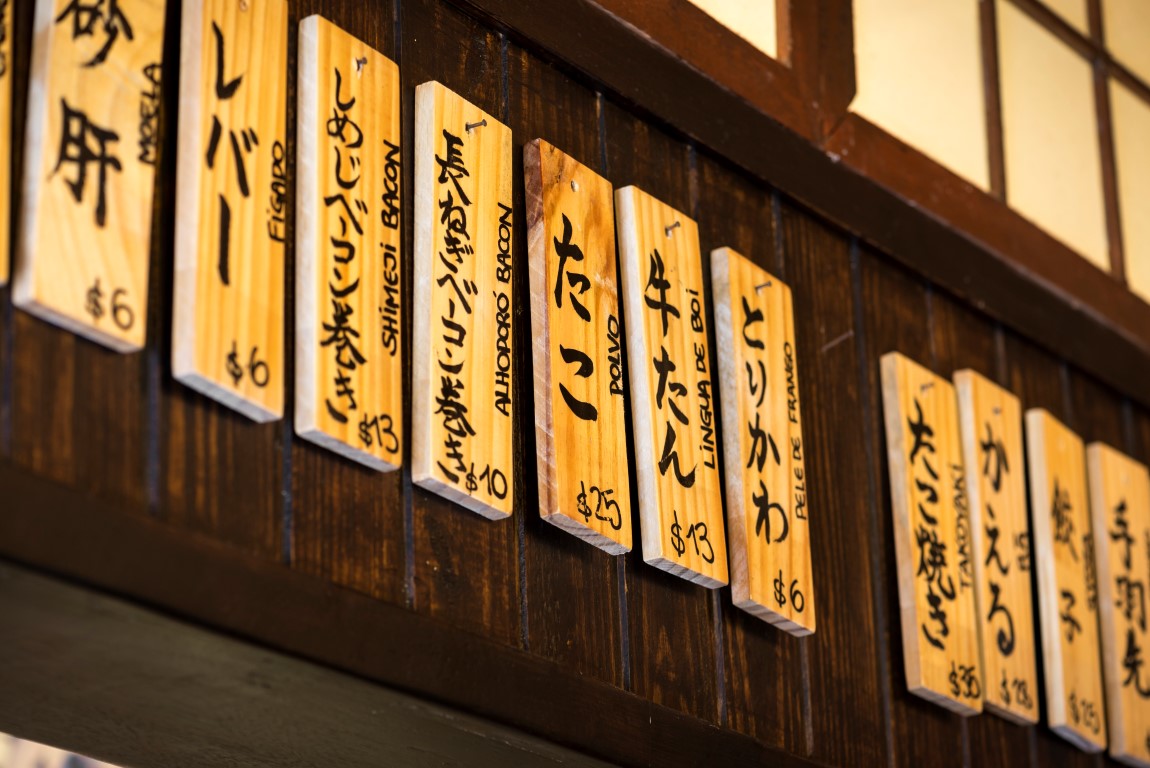 砂肝
MOELA
$6
レバー
FÍGADO
$6
しめじベーコン巻き
SHIMEJI BACON
$13
長ねぎベーコン巻き
ALHOPORÓ BACON
$10
たこ
POLVO
$25
牛たん
LÍNGUA DE BOI
$13
とりかわ
PELE DE FRANGO
$6
たこ焼き
TAKOYAKI
$35
かえる
$28
餃子
$25
手羽先